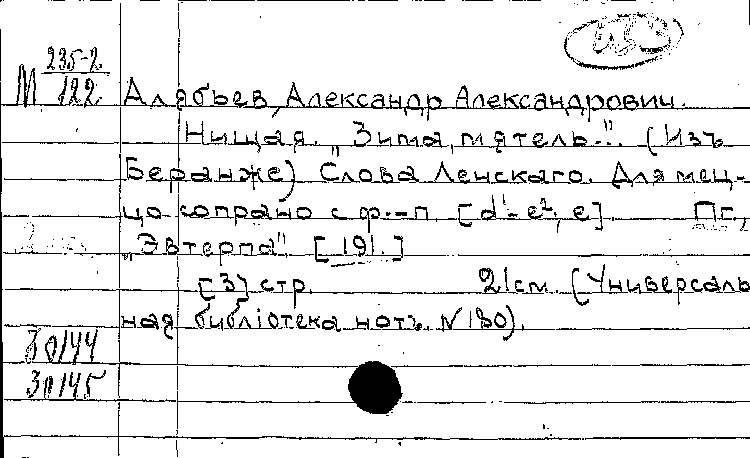 изъ
М 235-2
122
Алябьев, Александр Александрович.
Нищая. „Зима, мятель..." (Изъ
Беранже) Слова Ленскаго. Для мец-
цо-сопрано с ф.-п. [d¹-e², e] Пг.,
„Эвтерпа" [191.]
[3] стр. 21см. (Универсаль
ная библiотека нотъ. N 180).
30144
30145